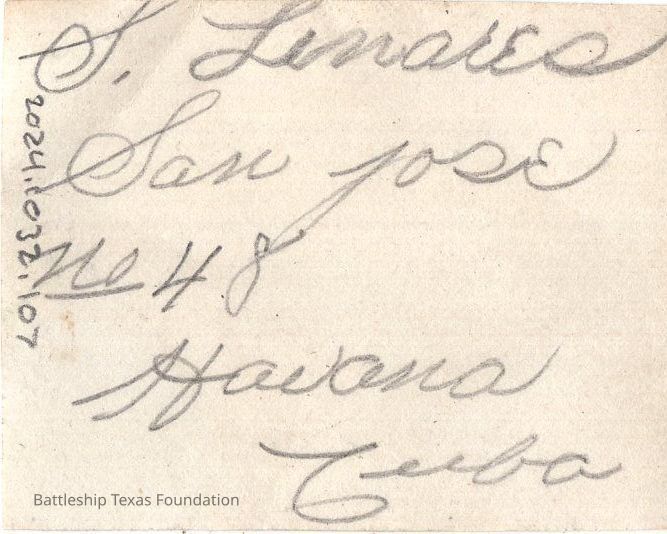 S. Linares
San Jose
No 48
Havana
Cuba
2024.032.107
Battleship Texas Foundation